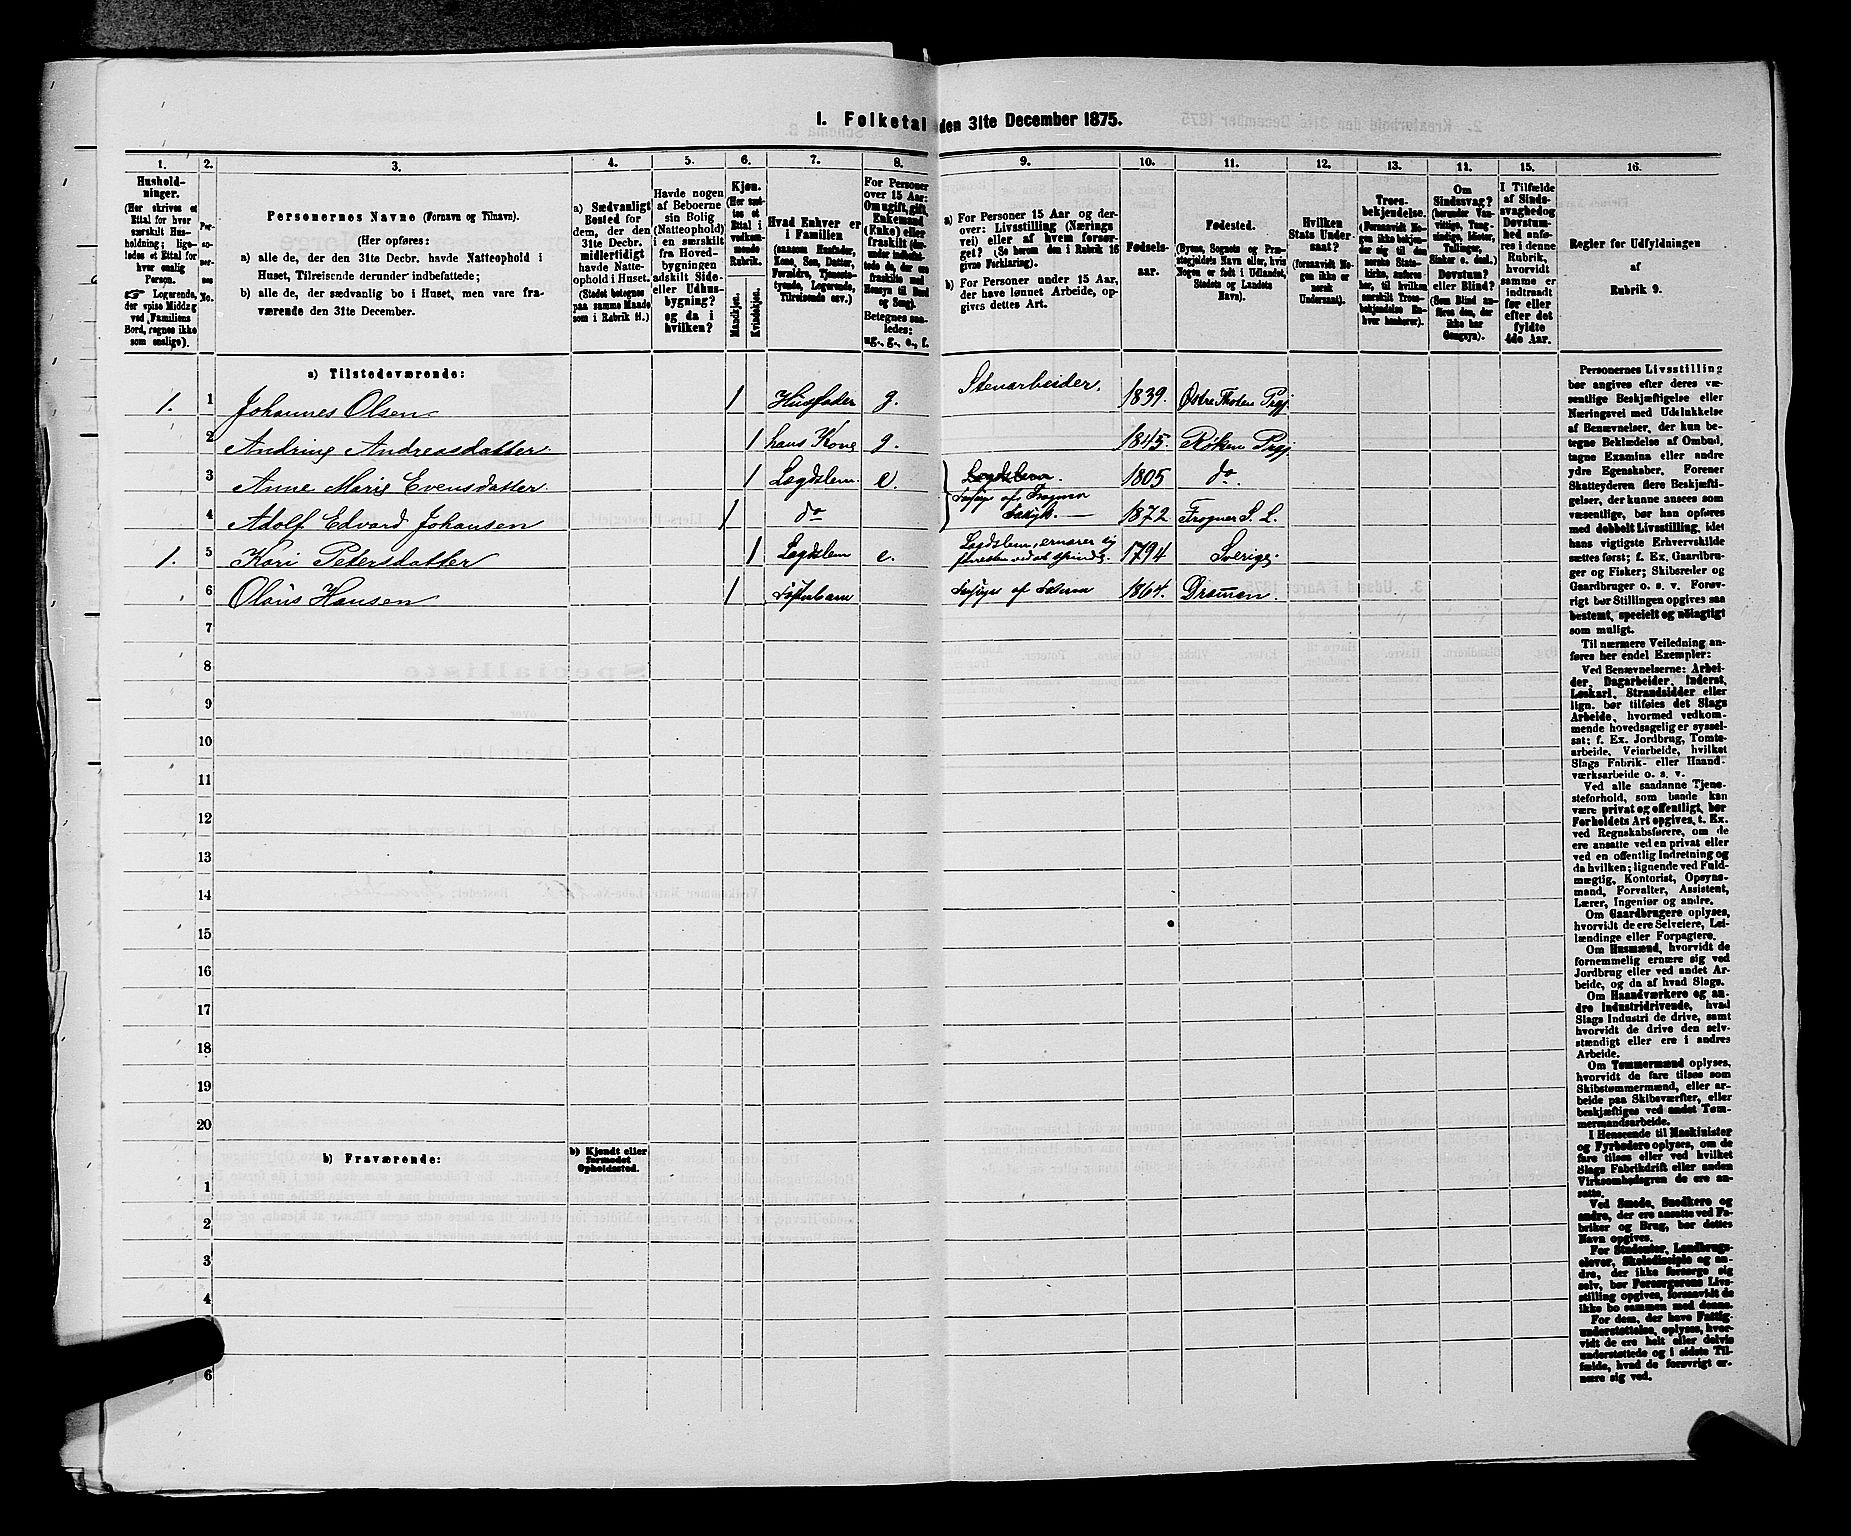 I. Folketal den 31te December 1875.
1. 2. 3. 4. 5. 6. 7. 8. 9. 10. 11. 12. 13. 14. 15. 16.
Hushold-
ninger.
(Her skrives et
Ettal for hver
særskilt Hus-
holdning; lige-
ledes et Ettal for
hver enslig
Person.
☞ Logerende,
der spise Middag
ved Familiens
Bord, regnes ikke
som enslige).
Per-
so-
ner-
nes
No.
Personernes Navne (Fornavn og Tilnavn).
(Her opføres:
a) alle de, der den 31te Decbr. havde Natteophold i
Huset, Tilreisende derunder indbefattede;
b) alle de, der sædvanlig bo i Huset, men vare fra-
værende den 31te December.
a) Sædvanligt
Bosted for
dem, der den
31te Decbr.
midlertidigt
havde Natte-
ophold i Huset.
(Stedet betegnes
paa samme Maade
som i Rubrik 11.)
Havde nogen
af Beboerne
sin Bolig
(Natteophold)
i en særskilt
fra Hoved-
bygningen
adskilt Side-
eller Udhus-
bygning?
og da i
hvilken?
Kjøn.
(Her sæt-
tes et
Ettal i
vedkom-
mende
Rubrik.
Mandkjøn.
Kvindekjøn.
Hvad Enhver er
i Familien
(saasom Husfader,
Kone, Søn, Datter,
Forældre, Tjeneste-
tyende, Logerende,
Tilreisende osv.)
For Personer
over 15 Aar:
Om ugift, gift,
Enkemand
(Enke) eller
fraskilt (der-
under indbefat-
tede de, der ere
fraskilte med
Hensyn til Bord
og Seng).
Betegnes saa-
ledes:
ug., g., e., f.
a) For Personer 15 Aar og der-
over: Livsstilling (Nærings
vei) eller af hvem forsør-
get? (Se herom den i Rubrik 16
givne Forklaring).
b) For Personer under 15 Aar,
der have lønnet Arbeide, op-
gives dettes Art.
Fødsels-
aar.
Fødested.
(Byens, Sognets og Præ-
stegjeldets Navn eller, hvis
Nogen er født i Udlandet,
Stedets og Landets
Navn).
Hvilken
Stats Under-
saat?
(forsaavidt No-
gen ikke er
norsk
Undersaat).
Troes-
bekjendelse.
(Forsaavidt No-
gen ikke bekjen-
der sig til den
norske Stats-
kirke, anføres
her, til hvilken
særskilt Troes-
bekjendelse En-
hver henhører).
Om
Sindssvag?
(herunder Van-
vittige, Tung-
sindige, Idioter,
Tullinger,
Sinker o. desl.)
Døvstum?
eller Blind?
(Som Blind an-
føres den, der
ikke har
Gangsyn).
I Tilfælde
af Sinds-
svaghed og
Døvstum-
hed anfø-
res i denne
Rubrik,
hvorvidt
samme er
indtraadt
før eller
efter det
fyldte
4de Aar.
Regler for Udfyldningen
af
Rubrik 9.
a) Tilstedeværende:
1. 1 Johannes Olsen 1 Husfader g. Stenarbeider. 1839. Østre Thoten Prgj
2 Andrine Andreasdatter 1 hans Kone g. 1845. Røken Prgj
3 Anne Marie Evensdatter 1 Lægdslem. e. Lægdslem. 1805 do.
4 Adolf Edvard Johansen 1 do 1872 Frogner S. L.
1. 5 Kari Petersdatter 1 Lægdslem e. Lægdslem, ernærer sig forresten ved at spinde. 1794 Sverige.
6 Olaus Hansen 1 1864. Dramen.
7
8
9
10
11
12
13
14
15
16
17
18
19
20
b) Fraværende:
b) Kjendt eller
formodet
Opholdssted.
1
2
3
4
6
Personernes Livsstilling
bør angives efter deres væ-
sentlige Beskjæftigelse eller
Næringsvei med Udelukkelse
af Benævnelser, der kun be-
tegne Beklædelse af Ombud,
tagne Examina eller andre
ydre Egenskaber. Forener
Skatteyderen flere Beskjæfti-
gelser, der kunne ansees som
væsentlige, bør han opføres
med dobbelt Livsstilling, idet
hans vigtigste Erhvervskilde
sættes først; f. Ex. Gaardbru-
ger og Fisker; Skibsreder og
Gaardbruger o. s. v. Forøv-
rigt bør Stillingen opgives saa
bestemt, specielt og nøiagtigt
som muligt.
Til nærmere Veiledning an-
føres her endel Exempler:
Ved Benævnelserne: Arbei-
der, Dagarbeider, Inderst,
Løskarl, Strandsidder eller
lign. bør tilføies det Slags
Arbeide, hvormed vedkom-
mende hovedsagelig er syssel-
sat; f. Ex. Jordbrug, Tomte-
arbeide, Veiarbeide, hvilket
Slags Fabrik- eller Haand-
værksarbeide o. s. v.
Ved alle saadanne Tjene-
steforhold, som baade kan
være privat og offentligt, bør
Forholdets Art opgives, t. Ex.
ved Regnskabsførere, om de
ere ansatte ved en privat eller
ved en offentlig Indretning og
da hvilken; lignende ved Fuld-
mægtig, Kontorist, Opsyns-
mand, Forvalter, Assistent,
Lærer, Ingeniør og andre.
Om Gaardbrugere oplyses,
hvorvidt de ere Selveiere, Lei-
lændinge eller Forpagtere.
Om Husmænd, hvorvidt de
fornemmelig ernære sig ved
Jordbrug eller ved andet Ar-
beide, og da af hvad Slags.
Om Haandværkere og an-
dre Industridrivende, hvad
Slags Industri de drive, samt
hvorvidt de drive den selv-
stændigt eller ere i andres
Arbeide.
Om Tømmermænd oplyses,
hvorvidt de fare tilsøs som
Skibstømmermænd, eller ar-
beide paa Skibsværfter, eller
beskjæftiges ved andet Tøm-
mermandsarbeide.
I Henseende til Maskinister
og Fyrbødere oplyses, om de
fare tilsøs eller ved hvilket
Slags Fabrikdrift eller anden
Virksomhedsgren de ere an-
satte.
Ved Smede, Snedkere og
andre, der ere ansatte ved Fa-
briker og Brug, bør dettes
Navn opgives.
For Studenter, Landbrugs-
elever, Skoledisciple og an-
dre, der ikke forsørge sig
selv, bør Forsørgerens Livs-
stilling opgives, forsaavidt de
ikke bo sammen med denne.
For dem, der have Fattig-
understøttelse, oplyses, hvor-
vidt de ere helt eller delvis
understøttede og i sidste Til-
fælde, hvad de forøvrigt er-
nære sig ved.